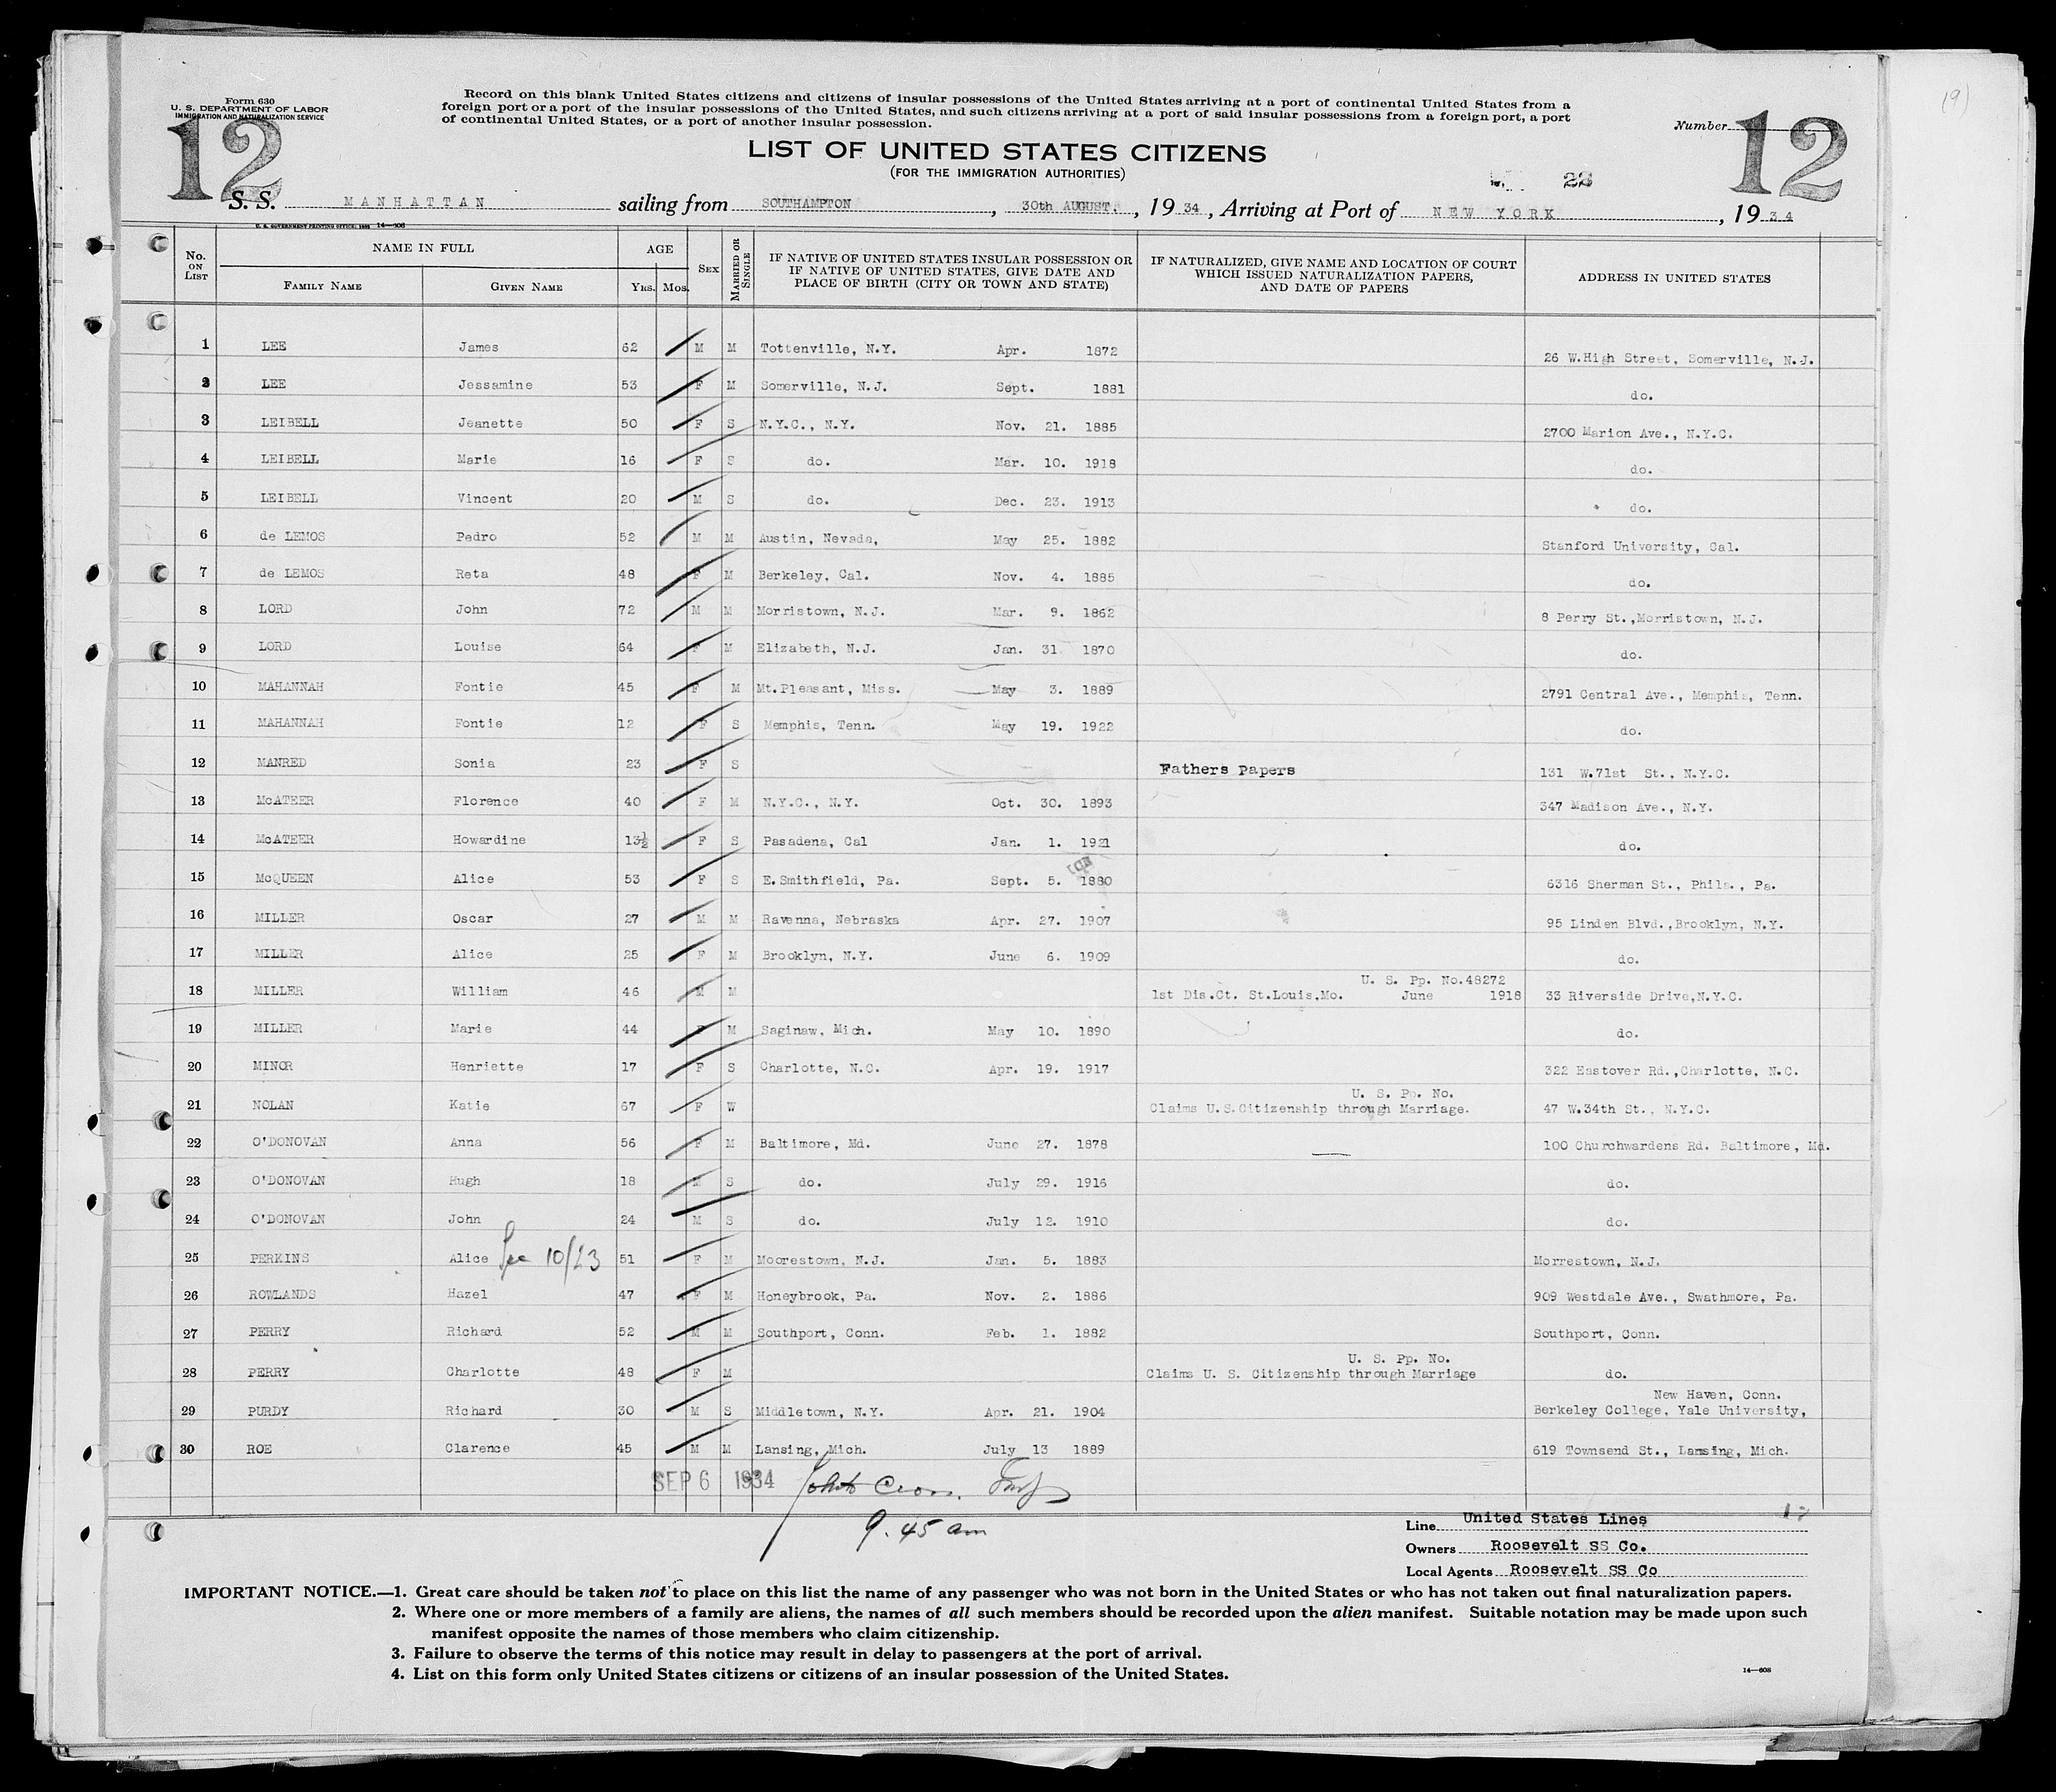 (9)
Form 630
U. S. DEPARTMENT OF LABOR
IMMIGRATION AND NATURALIZATION SERVICE
12
Record on this blank United States citizens and citizens of insular possessions of the United States arriving at a port of continental United States from a
foreign port or a port of the insular possessions of the United States, and such citizens arriving at a port of said insular possessions from a foreign port, a port
of continental United States, or a port of another insular possession.
Number 12
LIST OF UNITED STATES CITIZENS
(FOR THE IMMIGRATION AUTHORITIES)
22
S. S. MANHATTAN sailing from SOUTHAMPTON, 30th AUGUST., 1934, Arriving at Port of NEW YORK, 1934
U. S. GOVERNMENT PRINTING OFFICE: 14—608
No. ON LIST NAME IN FULL FAMILY NAME GIVEN NAME AGE YRS. MOS. SEX MARRIED OR SINGLE IF NATIVE OF UNITED STATES INSULAR POSSESSION OR IF NATIVE OF UNITED STATES, GIVE DATE AND PLACE OF BIRTH (CITY OR TOWN AND STATE) IF NATURALIZED, GIVE NAME AND LOCATION OF COURT WHICH ISSUED NATURALIZATION PAPERS, AND DATE OF PAPERS ADDRESS IN UNITED STATES
1 LEE James 62 M M Tottenville, N.Y. Apr. 1872 26 W.High Street, Somerville, N.J.
2 LEE Jessamine 53 F M Somerville, N.J. Sept. 1881 do.
3 LEIBELL Jeanette 50 F S N.Y.C., N.Y. Nov. 21. 1885 2700 Marion Ave., N.Y.C.
4 LEIBELL Marie 16 F S do. Mar. 10. 1918 do.
5 LEIBELL Vincent 20 M S do. Dec. 23. 1913 do.
6 de LEMOS Pedro 52 M M Austin, Nevada, May 25. 1882 Stanford University, Cal.
7 de LEMOS Reta 48 F M Berkeley, Cal. Nov. 4. 1885 do.
8 LORD John 72 M M Morristown, N.J. Mar. 9. 1862 8 Perry St.,Morristown, N.J.
9 LORD Louise 64 F M Elizabeth, N.J. Jan. 31 1870 do.
10 MAHANNAH Fontie 45 F M Mt.Pleasant, Miss. May 3. 1889 2791 Central Ave., Memphis, Tenn.
11 MAHANNAH Fontie 12 F S Memphis, Tenn. May 19. 1922 do.
12 MANRED Sonia 23 F S Fathers Papers 131 W.71st St., N.Y.C.
13 McATEER Florence 40 F M N.Y.C., N.Y. Oct. 30. 1893 347 Madison Ave., N.Y.
14 McATEER Howardine 13½ F S Pasadena, Cal Jan. 1. 1921 do.
15 McQUEEN Alice 53 F S E.Smithfield, Pa. Sept. 5. 1880 6316 Sherman St., Phila., Pa.
16 MILLER Oscar 27 M M Ravenna, Nebraska Apr. 27. 1907 95 Linden Blvd.,Brooklyn, N.Y.
17 MILLER Alice 25 F M Brooklyn, N.Y. June 6. 1909 do.
U. S. Pp. No.48272
18 MILLER William 46 M M 1st Dis.Ct. St.Louis,Mo. June 1918 33 Riverside Drive,N.Y.C.
19 MILLER Marie 44 F M Saginaw, Mich. May 10. 1890 do.
20 MINOR Henriette 17 F S Charlotte, N.C. Apr. 19. 1917 322 Eastover Rd.,Charlotte, N.C.
U. S. Pp. No.
21 NOLAN Katie 67 F W Claims U.S.Citizenship through Marriage. 47 W.34th St., N.Y.C.
22 O'DONOVAN Anna 56 F M Baltimore, Md. June 27. 1878 100 Churchwardens Rd. Baltimore, Md.
23 O'DONOVAN Hugh 18 M S do. July 29. 1916 do.
24 O'DONOVAN John 24 M S do. July 12. 1910 do.
25 PERKINS Alice See 10/23 51 F M Moorestown, N.J. Jan. 5. 1883 Morrestown, N.J.
26 ROWLANDS Hazel 47 F M Honeybrook, Pa. Nov. 2. 1886 909 Westdale Ave., Swathmore, Pa.
27 PERRY Richard 52 M M Southport, Conn. Feb. 1. 1882 Southport, Conn.
U. S. Pp. No.
28 PERRY Charlotte 48 F M Claims U. S. Citizenship through Marriage do.
New Haven, Conn.
29 PURDY Richard 30 M S Middletown, N.Y. Apr. 21. 1904 Berkeley College, Yale University,
30 ROE Clarence 45 M M Lansing, Mich. July 13 1889 619 Townsend St., Lansing, Mich.
SEP 6 1934
9.45 am
Line United States Lines
Owners Roosevelt SS Co.
Local Agents Roosevelt SS Co
IMPORTANT NOTICE.—1. Great care should be taken not to place on this list the name of any passenger who was not born in the United States or who has not taken out final naturalization papers.
2. Where one or more members of a family are aliens, the names of all such members should be recorded upon the alien manifest. Suitable notation may be made upon such
manifest opposite the names of those members who claim citizenship.
3. Failure to observe the terms of this notice may result in delay to passengers at the port of arrival.
4. List on this form only United States citizens or citizens of an insular possession of the United States.
14—608